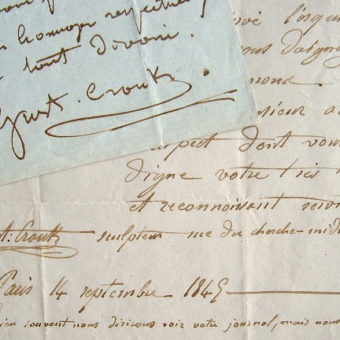 hommage respectueux
tout dévoué.
Gust. Crouk
vé l'esqu
ous daigne
mone.
sieur a
spect dont vou
digne votre très
et reconnaissant servi
t: Crouk sculpteur rue du cherche-midi
Paris 14 septembre 1845
ien souvent nous désirons voir votre journal, mais nous